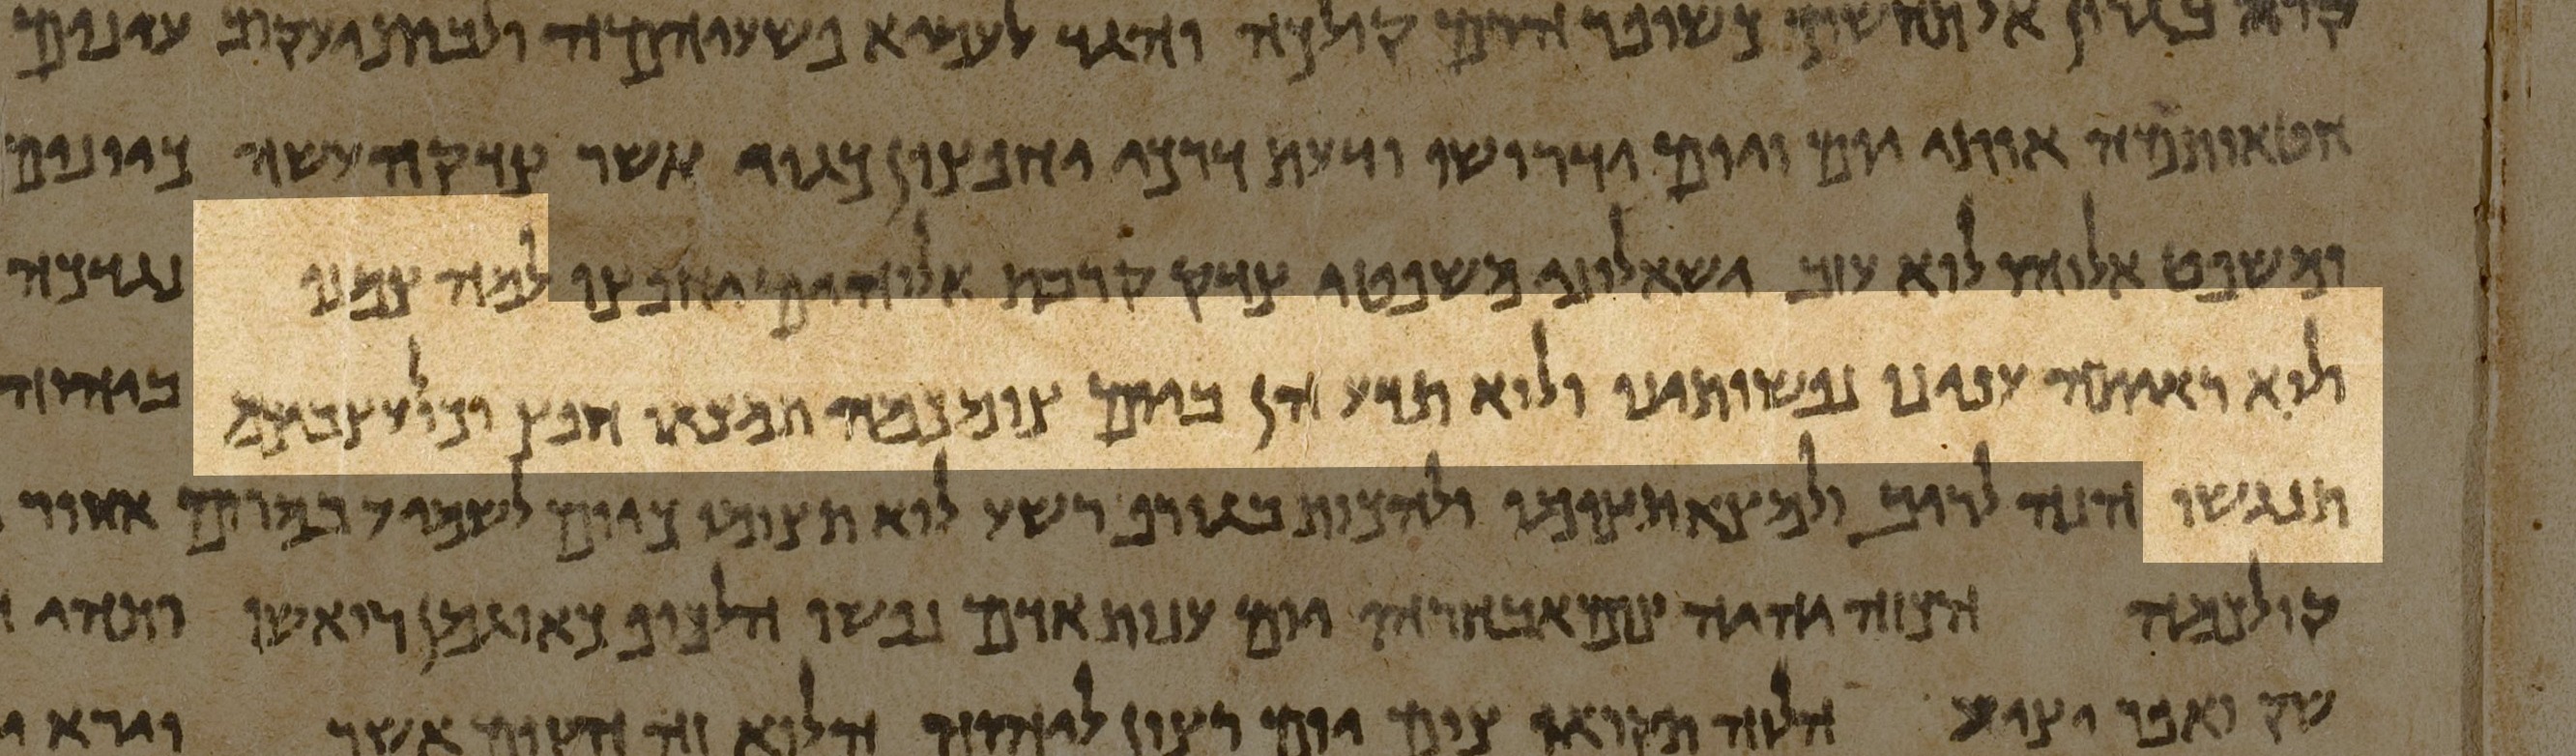 קרא בגרון אל תחשוך כשופר הרים קולכה והגד לעמיא פשעיהמה ולבית יעקוב
חטאותמה אותי יום ויום ידרושו ודעת דרכי יחפצון כגוי אשר צדקה עשה
ומשפט אלוהו לוא עזב ישאלוני משפטי צדק קרבת אלוהים יחפצו למה צמנו
ולוא ראיתה ענינו נפשותינו ולוא תדע הן ביום צומכמה תמצאו חפץ וכול עצביכמה
תנגשו הנה לריב ולמצא תצומו ולהכות בגורף רשע לוא תצומו כיום לשמיע במרום
קולכמה הכזה יהיה צום אבחרהו יום ענות אדם נפשו הלכוף כאוגמן רואשו
שק ואפר יציע הלזה תקראו צום ויום רצון ליהוה הלוא זה הצום אשר
עוונים
כיונים
נגדכה
ביהוה
אחור
ותהי
וירא